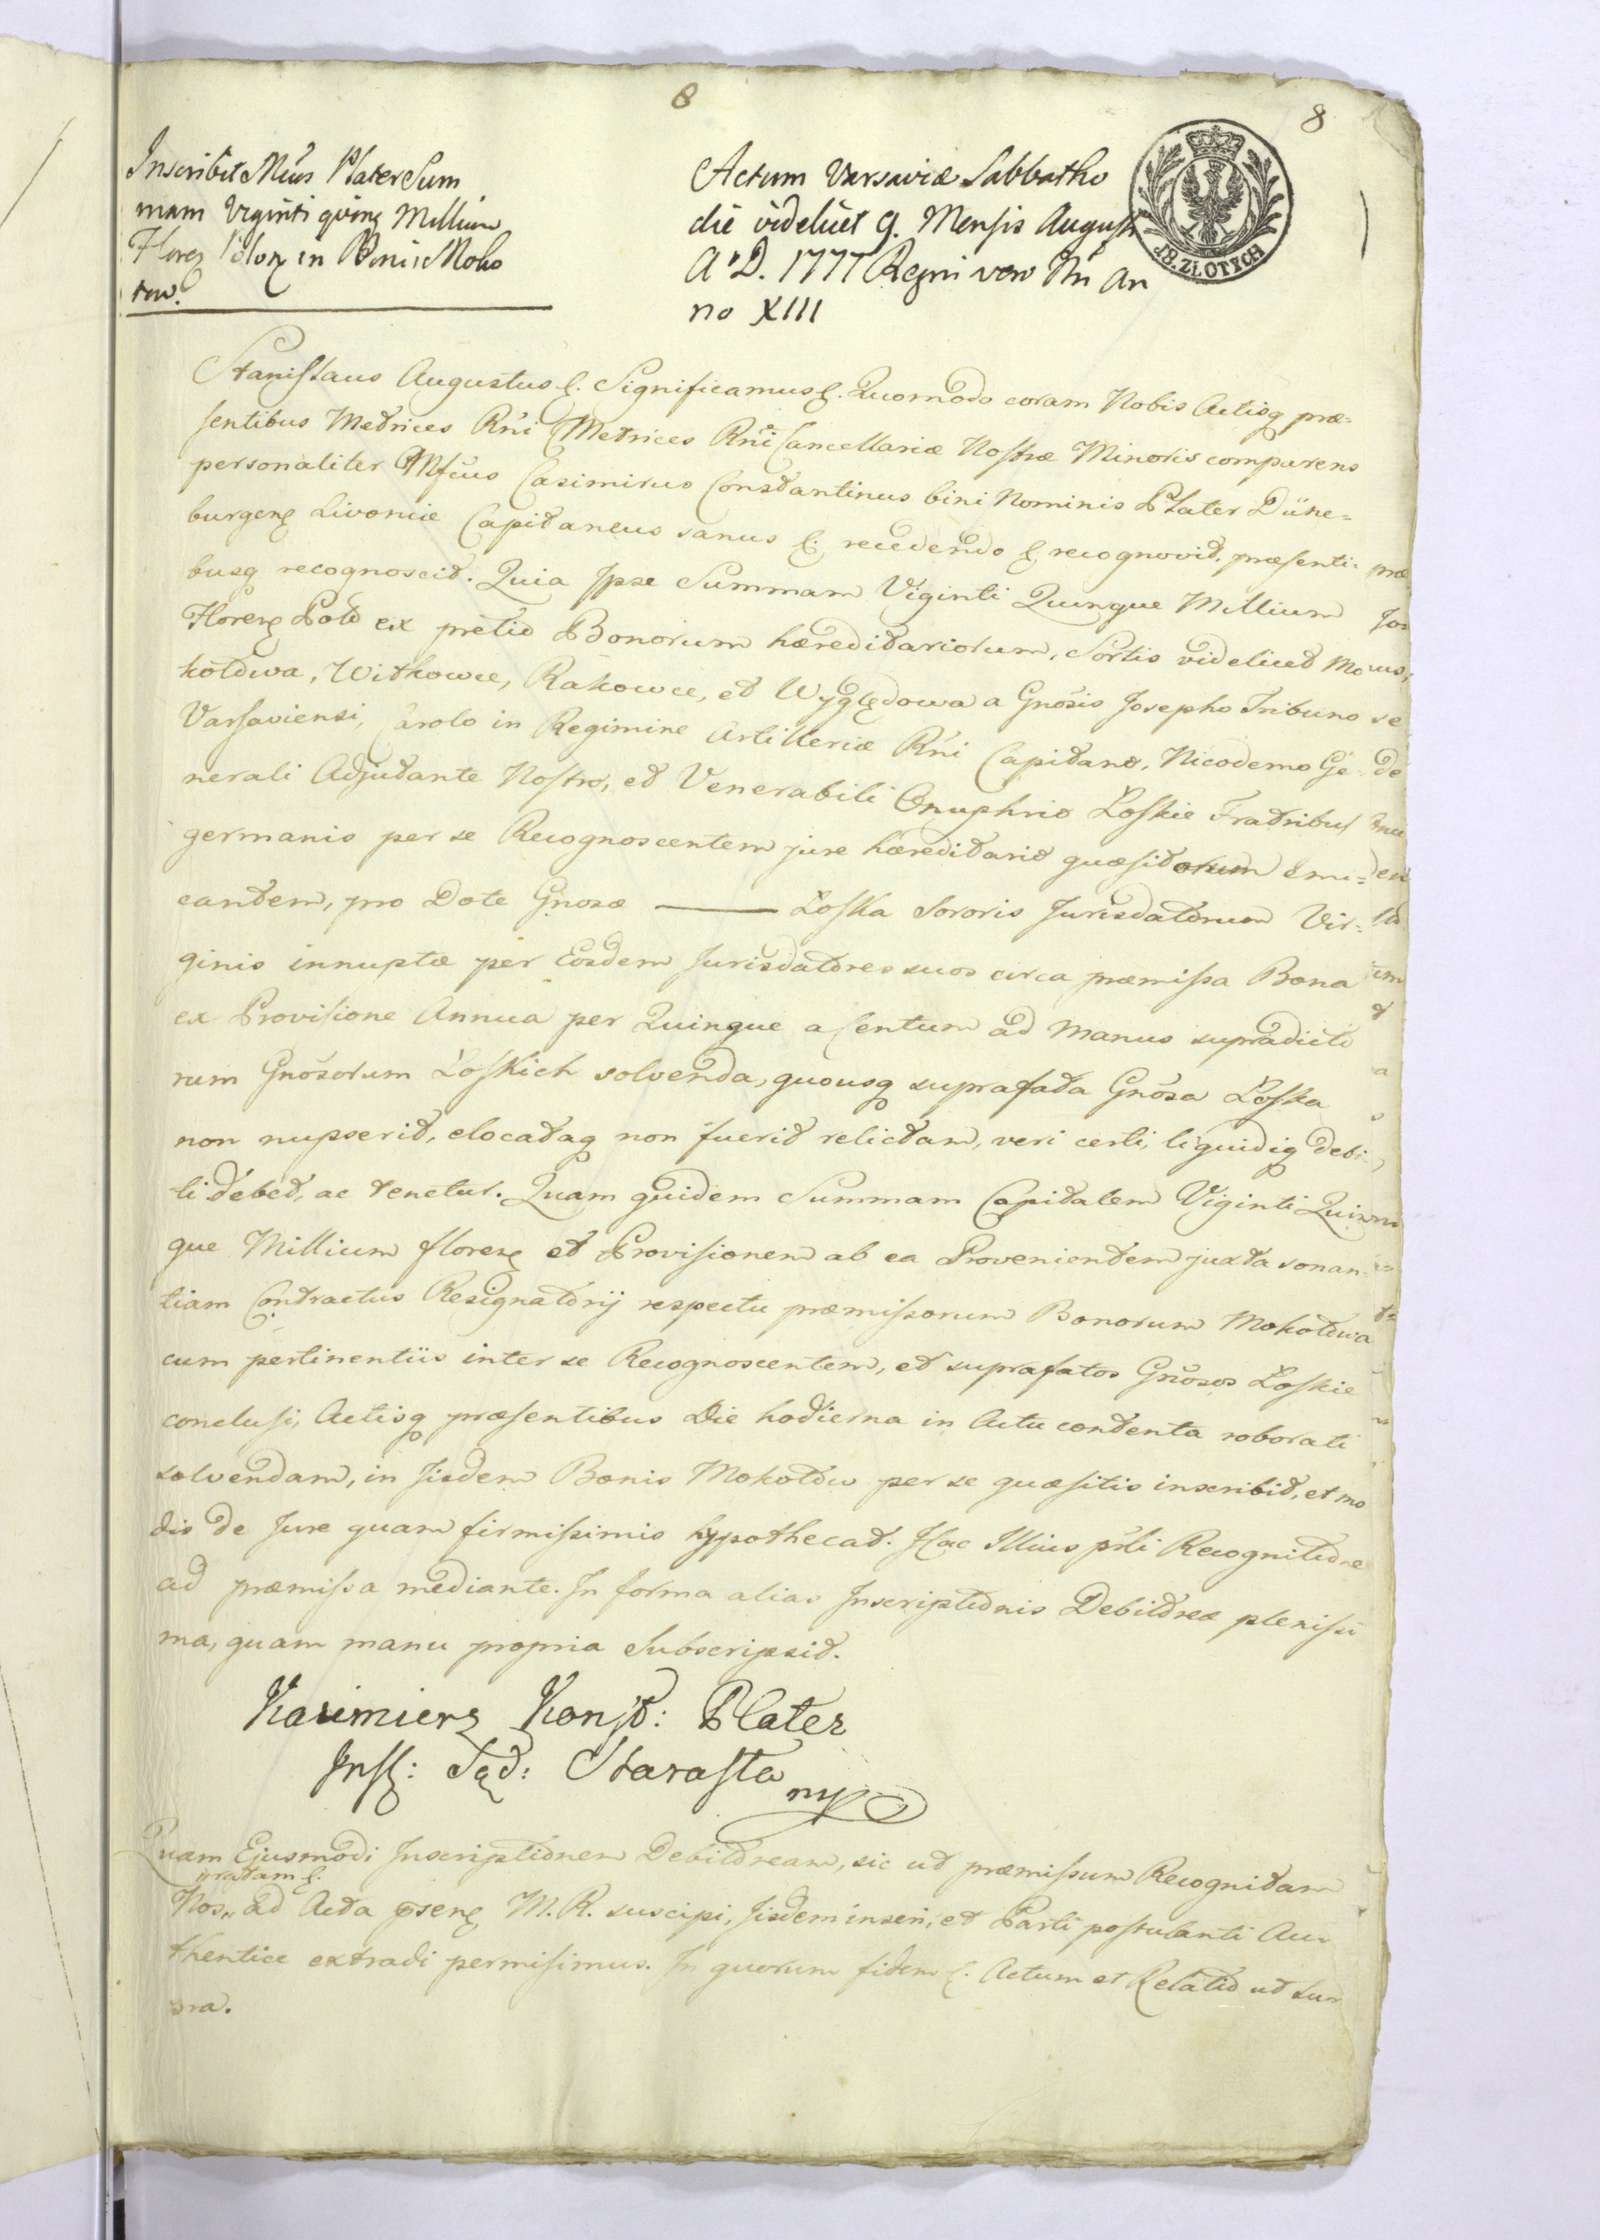 8
8
18. ZŁOTYCH
Inscribit Mfcus Plater Sum
mam Viginti qvinq Millium
Floren Polon in Bonis Moko
tow.
Actum Varsaviæ Sabbatho
die videlicet 9. Mensis Augusti
A. D. 1777 Regni vero Nri An
no XIII
Stanislaus Augustus &. Significamus &. Quomodo coram Nobis Actisq præ-
sentibus Metrices Rni Metrices Rni Cancellariæ Nostræ Minoris comparens
personaliter Mfcus Casimirus Constantinus bini Nominis Plater Düne=
burgen Livoniæ Capitaneus sanus &. recedendo & recognovit, præsenti-
busq recognoscit. Quia Ipse Summam Viginti Quinque Millium
Floren Pol ex pretio Bonorum hæreditariorum, Sortis videlicet Mo
kotowa, Witkowce, Rakowce, et Wyględowa a Gnosis Josepho Tribuno
Varsaviensi, Carolo in Regimine Artilleriæ Rni Capitano, Nicodemo Ge-
nerali Adjutante Nostro, et Venerabili Onuphrio Łoskie Fratribus
germanis per se Recognoscentem jure hæreditario quæsitorum emi=
cantem, pro Dote Gnosæ ——— Łoska Sororis Jurisdatorum Vir=
ginis innuptæ per Eosdem Jurisdatores suos circa præmissa Bona
ex Provisione Annua per Quinque a Centum ad manus supradicto
rum Gnosorum Łoskich solvenda, quousq suprafata Gnosa Łoska
non nupserit, elocataq non fuerit relictam, veri certi, liquidiq debi-
ti debet, ac tenetur. Quam quidem Summam Capitalem Viginti Quin
que Millium floren et Provisionem ab ea Provenientem juxta sonan-
tiam Contractus Resignatorij respectu præmissorum Bonorum Mokotowa
cum pertinentiis inter se Recognoscentem, et suprafatos Gnosos Łoskie
conclusi, Actisq præsentibus Die hodierna in Actu contenta roborati
solvendam, in Iisdem Bonis Mokotow per se quæsitis inscribit, et mo
dis de Jure quam firmissimis hypothecat. Hac Illius prsti Recognitione
ad præmissa mediante. In forma alias Inscriptionis Debitoreæ plenissi
ma, quam manu propria Subscripsit.
Kazimierz Konst: Plater
Infl: Sąd: Starosta
mp
Quam Ejusmodi Inscriptionem Debitoream, sic ut præmissum Recognitam
gratam &.
Nos,, ad Acta psen M. R. suscipi, Iisdem inseri, et Parti postulanti Au-
thentice extradi permisimus. In quorum fidem &. Actum et Relatio ut Su
pra.